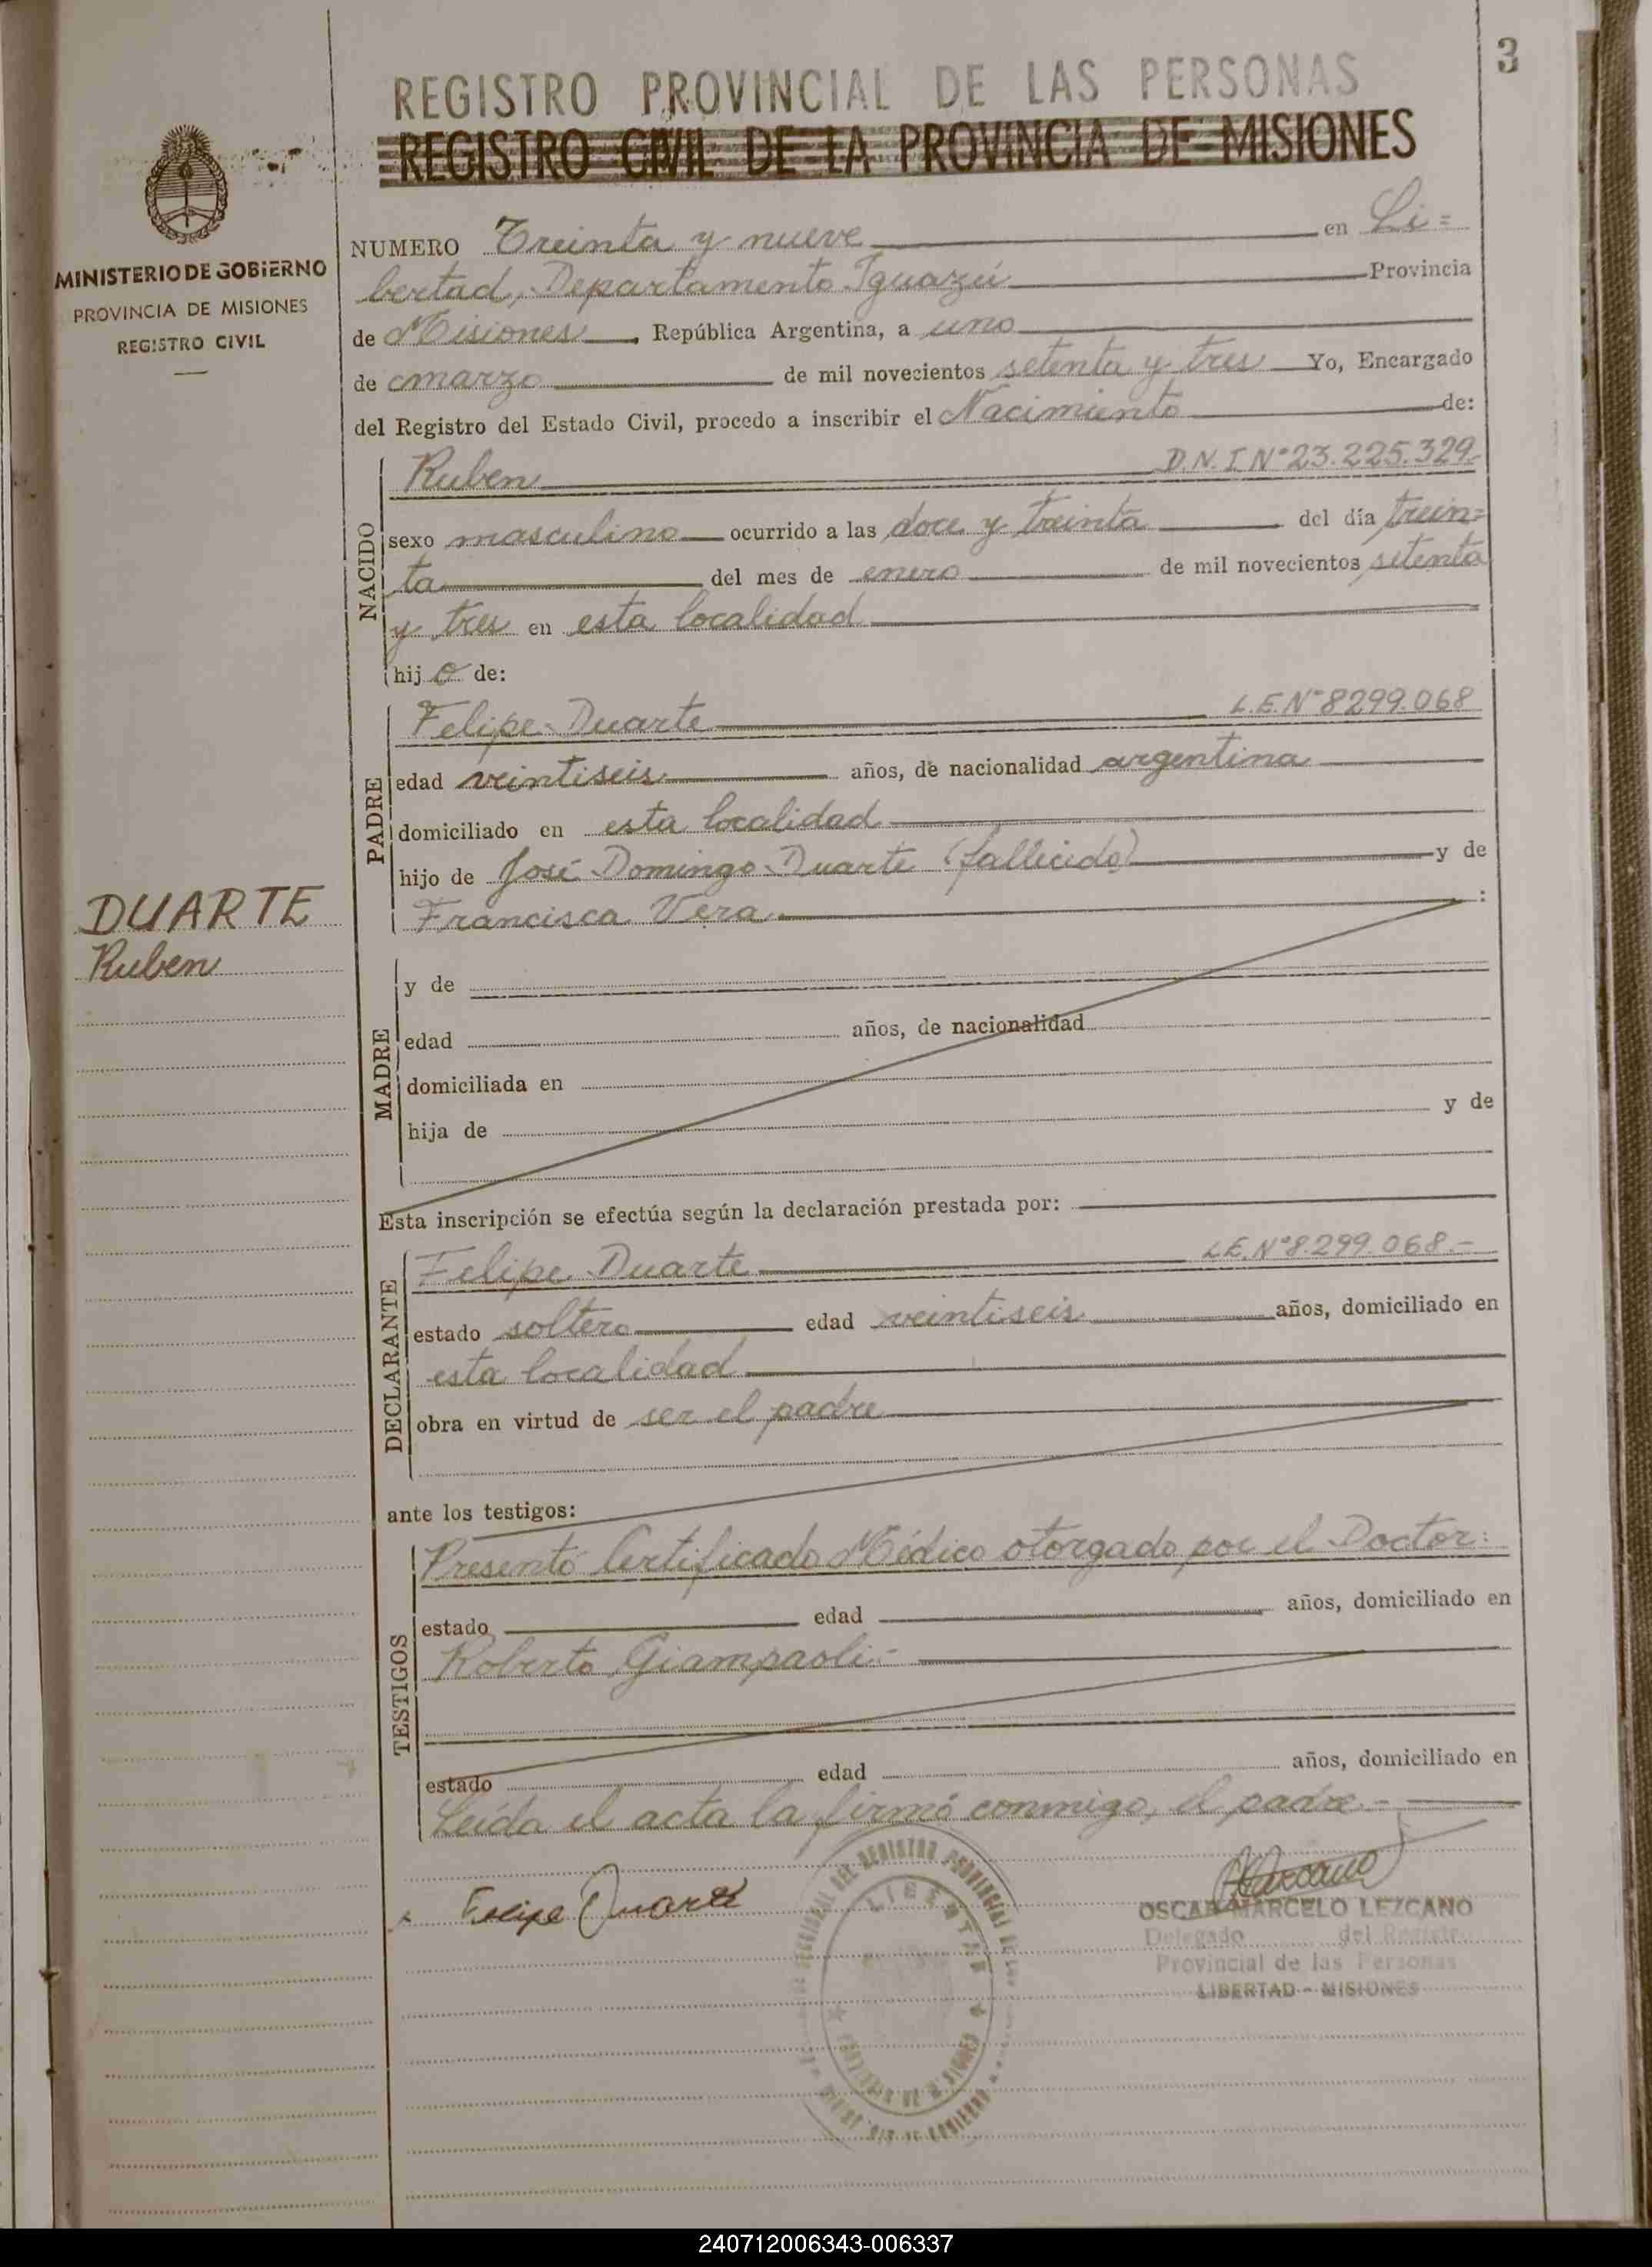 3
REGISTRO PROVINCIAL DE LAS PERSONAS
REGISTRO CIVIL DE LA PROVINCIA DE MISIONES
MINISTERIO DE GOBIERNO
PROVINCIA DE MISIONES
REGISTRO CIVIL
NUMERO Treinta y nueve en Li=
bertad, Departamento Iguazú Provincia
de Misiones, República Argentina, a uno
de marzo de mil novecientos setenta y tres Yo, Encargado
del Registro del Estado Civil, procedo a inscribir el Nacimiento de:
NACIDO
Ruben D.N.I Nº 23.225.329
sexo masculino ocurrido a las doce y treinta del día trein=
ta del mes de enero de mil novecientos setenta
y tres en esta localidad
hijo de:
PADRE
Felipe Duarte L.E.Nº 8299.068
edad veintiseis años, de nacionalidad argentina
domiciliado en esta localidad
hijo de José Domingo Duarte (fallecido) y de
Francisca Vera :
DUARTE
Ruben
MADRE
y de
edad años, de nacionalidad
domiciliada en
hija de y de
Esta inscripción se efectúa según la declaración prestada por:
DECLARANTE
Felipe Duarte L.E.Nº 8.299.068.-
estado soltero edad veintiseis años, domiciliado en
esta localidad
obra en virtud de ser el padre
ante los testigos:
TESTIGOS
Presentó Certificado Médico otorgado por el Doctor:
estado edad años, domiciliado en
Roberto Giampaoli.-
estado edad años, domiciliado en
Leída el acta la firmó conmigo, el padre.-
Felipe Duarte
OSCAR MARCELO LEZCANO
Delegado del Registro
Provincial de las Personas
LIBERTAD - MISIONES
DEL REGISTRO PROVINCIAL DE LAS
LIBERTAD
PROVINCIA DE MISIONES
240712006343-006337